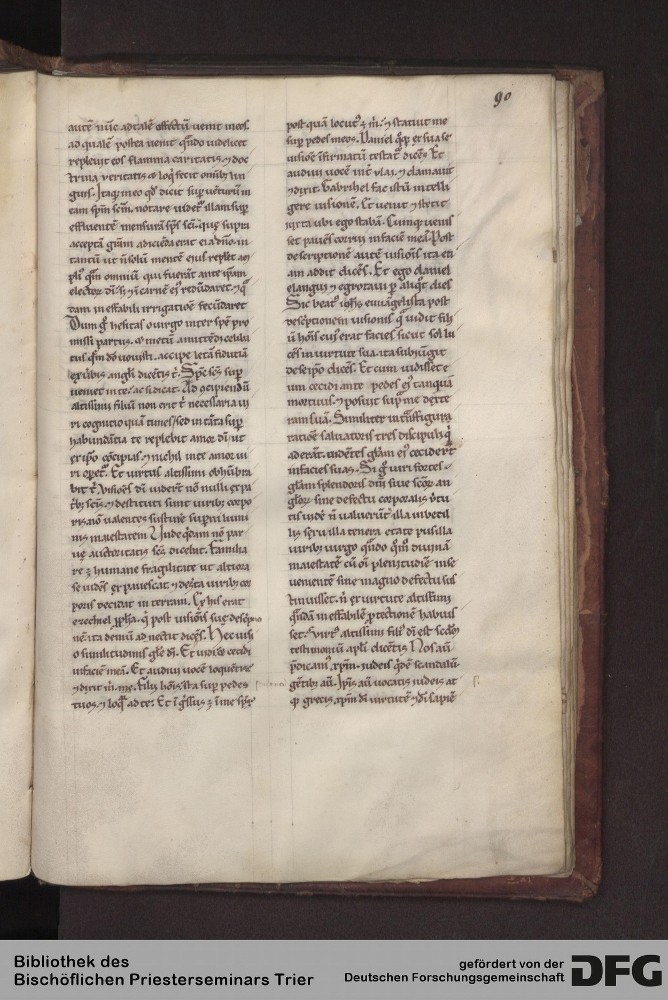 90
autē nūc ad talē effectū uenit meos.
ad qualē postea uenit qn̄do uidelicet
repleuit eos flamma caritatis. ⁊ doc
trina ueritatis ⁊ loqͥ fecit omībꝫ lin
guis. Itaqꝫ in eo qd̓ dicit suꝑ uēturū in
eam spm̄ scm̄. notare uidet᷑ illam suꝑ
effluentē mensurā sps̄ sci. quę supra
acceptā grām adiciēda erat ei a dn̄o. in
tantū ut n̄ solū mente ei᷒ replet
pli᷒ qm̄ omniū qui fuerāt ante ipsam
elector
dam ineffabili irrigatiōe fecūdaret
Dum g̊ hesitas o uirgo inter spē pro
missi partus. ⁊ metū amittēdi celiba
tus qm̄ do uouisti. accipe letā fiduciā
ex uībis angli dicētis t̓. Spc̄ scs̄ suꝑ
ueniet in te. ac si dicat. Ad cipiendū
altissimi filiū non erit t̓ necessaria ui
ri cognitio quā times / sed in tāta suꝑ
habundātia te replebit amor dī. ut
ex ipo cōcipias. ⁊ nichil in te amor ui
ri opet᷑. Et uirtus altissimi obūbra
bit t̓. Visiōes dī uidert̄ nō nulli ex pa
tibꝫ scīs. ⁊ destituti sunt uiribꝫ corpo
ris. nō ualentes sustinē supni lumi
nis maiestatem Vnde qd̄am nō par
uę auctoritatis scs̄ dicebat. Familia
re ē humane fragilitati ut altiora
se uidēs expauescat. ⁊ derta uiribꝫ cor
poris decidat in terram. Ex his erat
ezechiel ppha. qͥ post uisiōis suę desc̄ptio
nē ita demū adnectit dicēs. Hec uisi
o similitudinis glę dī. Et uidi. ⁊ cecidi
in faciē meā. Et audiui uocē loquētis.
⁊ dixit m̄ me. Fili hōis. sta suꝑ pedes
tuos. ⁊ loqͣr ad te. Et īgssus ē in me sp̄s
post quā locut᷒ ē m̄. ⁊ statuit me
suꝑ pedes meos. Daniel qͦqꝫ ex sua se
uisiōe īfirmatū testat᷑ dicēs. Et
audiui uocē uiri int̄ vlai. ⁊ clamauit
⁊ dixit. Gabrihel fac istū intelli
gere uisionē. Et uenit ⁊ stetit
iuxta ubi ego stabā. Cumqꝫ uenis
set pauēs corrui in faciē meā. Post
descriptionē autē uisiōis ita eti
am addit dicēs. Et ego daniel
elangui ⁊ egrotaui ꝑ aliqͦt dies
Sic beat᷒ iohs̄ euuāgelista post
desc̄ptionem uisionis qͣ uidit fili
ū hōis cui᷒ erat facies sicut sol lu
cēs in uirtute sua. ita subiūgit
de se ipo dicēs. Et cum uidissem e
um cecidi ante pedes ei᷒ tanquā
mortuus. ⁊ posuit suꝑ me dexte
ram suā. Similiter in tᷓnsfigura
ratiōe saluatoris tres discipuli qͥ
aderāt. uidētes glam ei᷒ ceciderᷓt
in facies suas. Si g̊ uiri fortes
glam splendoris dn̄i siue scor an
glor sine defectu corporalis ūtu
tis uidē n̄ ualuerūt / illa inbecil
lis sexu illa tenera etate pusilla
uiribꝫ uirgo qn̄do qͦm̊ diuinā
maiestatē cū oī plenitudinē in se
uenientē sine magno defectu sus
tinuisset. n̄ ex uirtute altissimi
qͣsdā ineffabilē ꝓtectionē habuis
set. Virt᷒ altissimi fili᷒ dī est scdm̄
testimoniū apli dicētis Nos aū
p̄dicam᷒ xpm̄. iudeis qͥdē scandalū.
gētibꝫ aū. Ipis aū uocatis iudeis at
qꝫ grecis. xpm̄ dī uirtutē ⁊ dī sapiē
Bibliothek des
Bischöflichen Priesterseminars Trier
gefördert von der
Deutschen Forschungsgemeinschaft
DFG